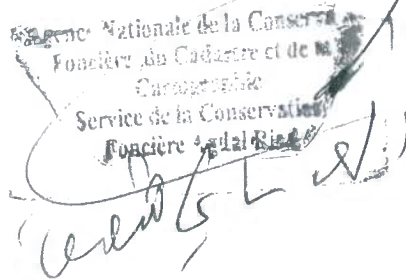 Agence Nationale de la Conservation
Foncière du Cadastre et de la
Cartographie
Service de la Conservation
Foncière Agdal Riad